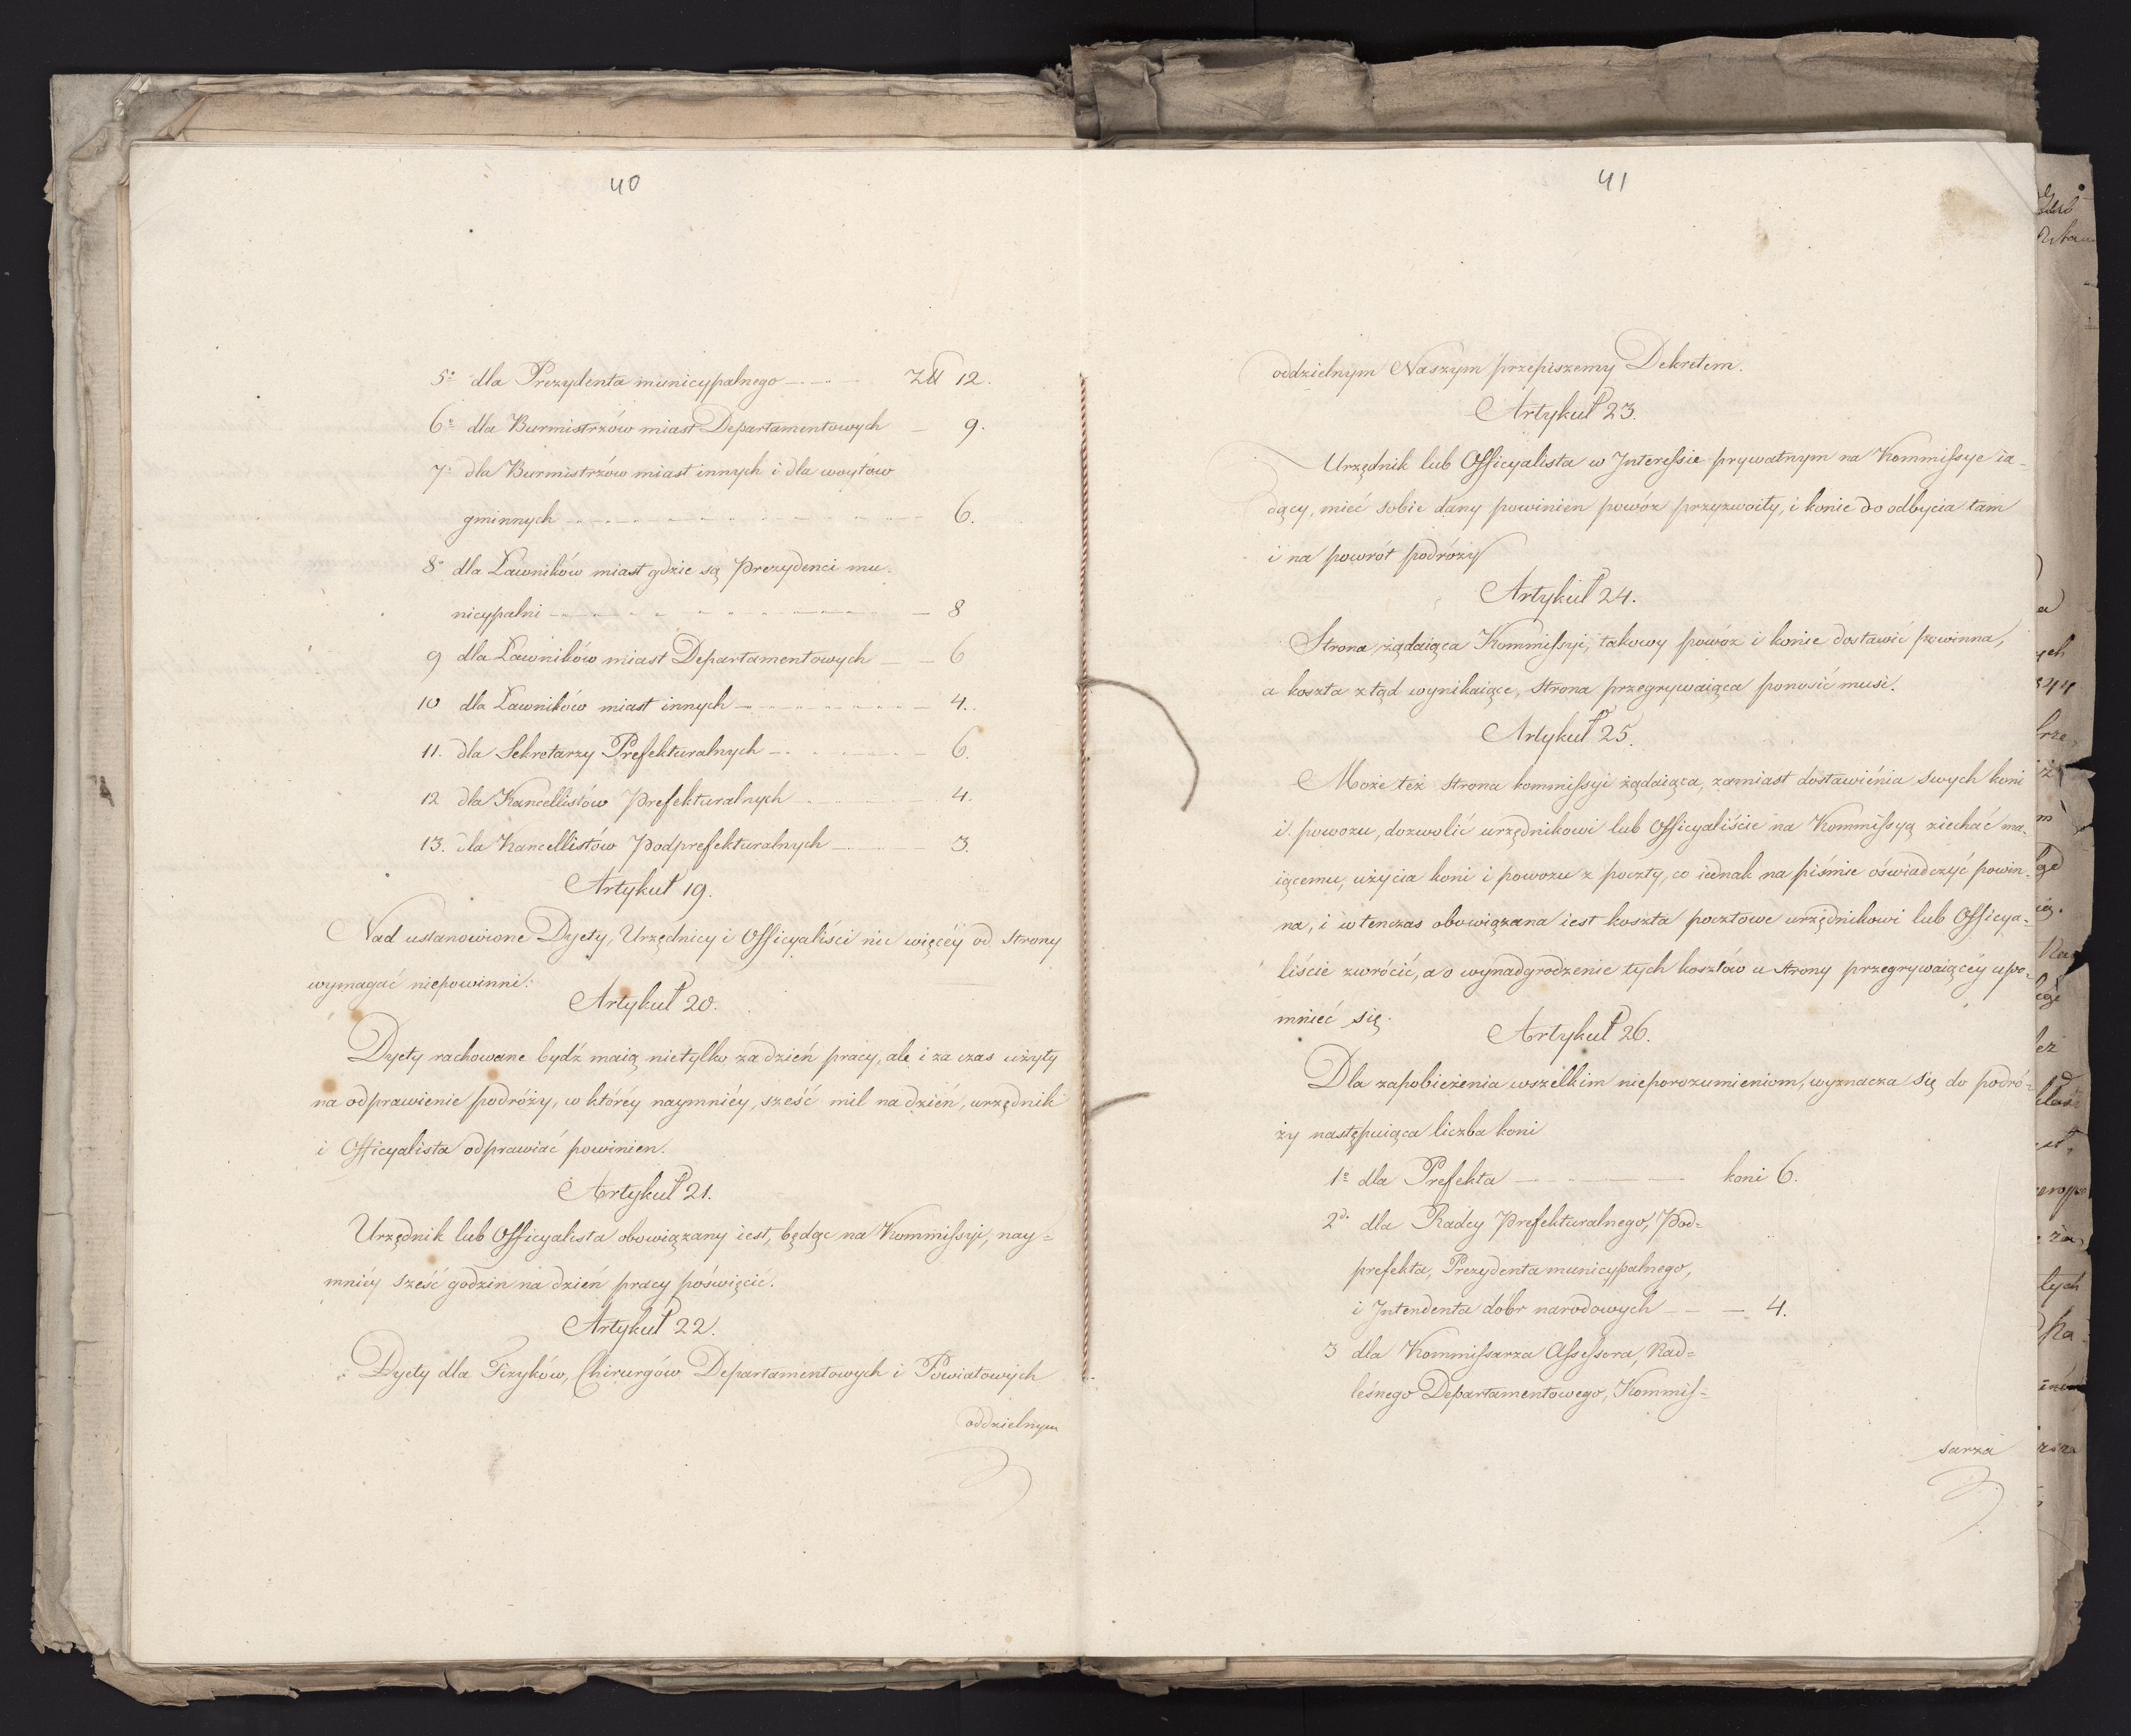 40
5º dla Prezydenta municypalnego — — Złł 12.
6º dla Burmistrzów miast Departamentowych — 9.
7º dla Burmistrzów miast innych i dla woytów
gminnych — — — 6.
8º dla Ławników miast gdzie są Prezydenci mu-
nicypalni — — — 8
9 dla Ławników miast Departamentowych — — 6
10 dla Ławników miast innych — — — 4.
11. dla Sekretarzy Prefekturalnych — — — 6.
12 dla Kancellistów Prefekturalnych — — 4.
13. dla Kancellistów Podprefekturalnych — — 3.
Artykuł 19.
Nad ustanowione Dyety, Urzędnicy i Officyaliści nic więcéy od strony
wymagać niepowinni.
Artykuł 20.
Dyety rachowane bydź maią nietylko za dzień pracy, ale i za czas użyty
na odprawienie podróży, w któréy naymniéy, sześć mil na dzień, urzędnik
i Officyalista odprawiać powinien.
Artykuł 21.
Urzędnik lub Officyalista obowiązany iest, będąc na Kommissyi, nay=
mniéy sześć godzin na dzień pracy poświęcić.
Artykuł 22.
Dyety dla Fizyków, Chirurgów Departamentowych i Powiatowych
oddzielnym
41
oddzielnym Naszym przepiszemy Dekretem.
Artykuł 23.
Urzędnik lub Officyalista w Interessie prywatnym na Kommissye ia-
dący, mieć sobie dany powinien powóz przyzwoity, i konie do odbycia tam
i na powrót podróży
Artykuł 24.
Strona żądaiąca Kommissyi, takowy powóz i konie dostawić powinna,
a koszta ztąd wynikaiące, strona przegrywaiąca ponosić musi.
Artykuł 25.
Może też strona kommissyi żądaiąca, zamiast dostawiénia swych koni
i powozu, dozwolić urzędnikowi lub Officyaliście na Kommissyą ziechać ma-
iącemu, użycia koni i powozu z poczty, co iednak na piśmie oświadczyć powin-
na, i wtenczas obowiązana iest koszta pocztowe urzędnikowi lub Officya-
liście zwrócić, a o wynadgrodzenie tych kosztów u strony przegrywaiącéy upo-
mnieć się.
Artykuł 26.
Dla zapobieżenia wszelkim nieporozumieniom, wyznacza się do podró-
ży następuiąca liczba koni
1º dla Prefekta — — — koni 6.
2do dla Radcy Prefekturalnego, Pod=
prefekta, Prezydenta municypalnego,
i Intendenta dóbr narodowych — — — 4.
3 dla Kommissarza Assessora, Nad=
leśnego Departamentowego, Kommis=
sarza